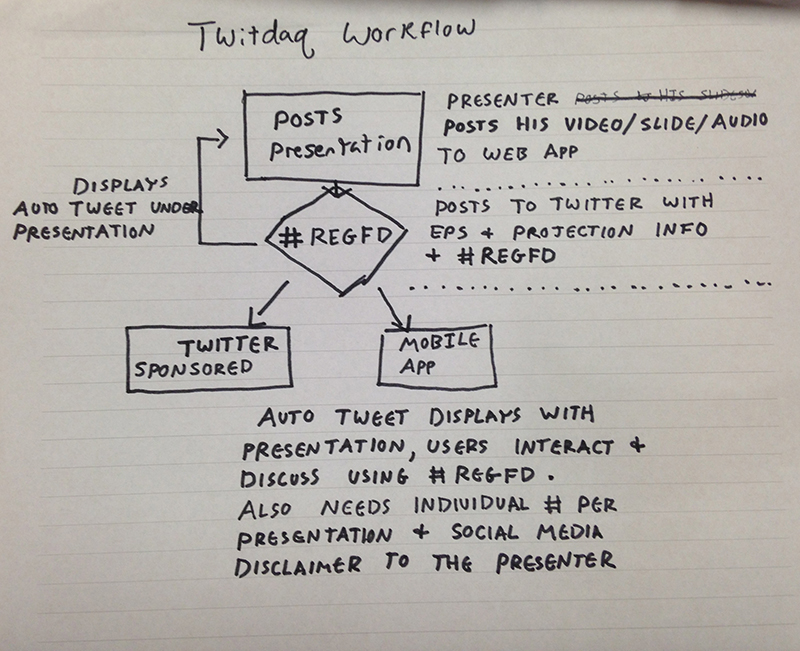 Twitdaq Workflow
POSTS
Presentation
PRESENTER POSTS to HIS SLIDESH
POSTS HIS VIDEO/SLIDE/AUDIO
TO WEB APP
DISPLAYS
AUTO TWEET UNDER
PRESENTATION
#REGFD
POSTS TO TWITTER WITH
EPS + PROJECTION INFO
+ #REGFD
TWITTER
SPONSORED
MOBILE
APP
AUTO TWEET DISPLAYS WITH
PRESENTATION, USERS INTERACT +
DISCUSS USING #REGFD.
ALSO NEEDS INDIVIDUAL # PER
PRESENTATION + SOCIAL MEDIA
DISCLAIMER TO THE PRESENTER